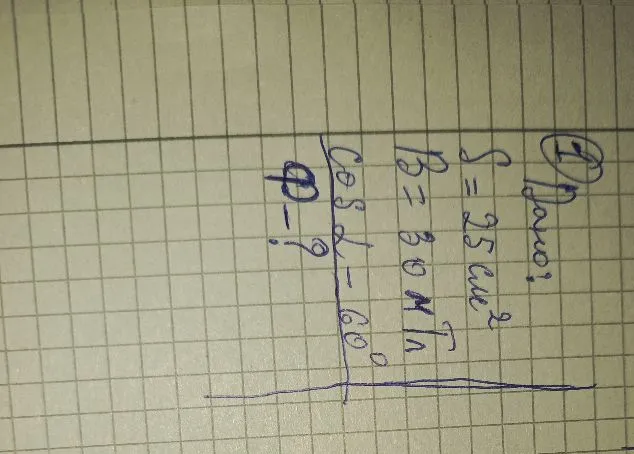 ① Дано:
S = 25 см²
B = 30 мТл
cos α - 60°
Ф - ?